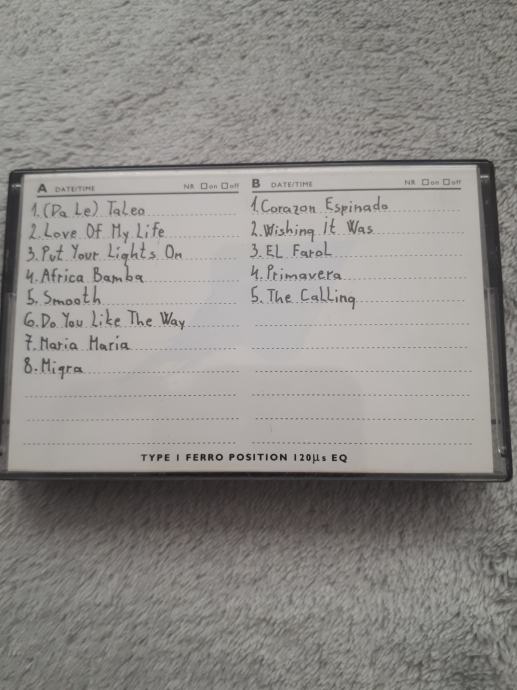 A DATE/TIME NR on off
1.(Da Le) Taleo
2.Love Of My Life
3.Put Your Lights On
4.Africa Bamba
5.Smooth
6.Do You Like The Way
7.Maria Maria
8.Migra
B DATE/TIME NR on off
1.Corazon Espinado
2.Wishing it Was
3.EL Farol
4.Primavera
5.The Calling
TYPE I FERRO POSITION 120µs EQ